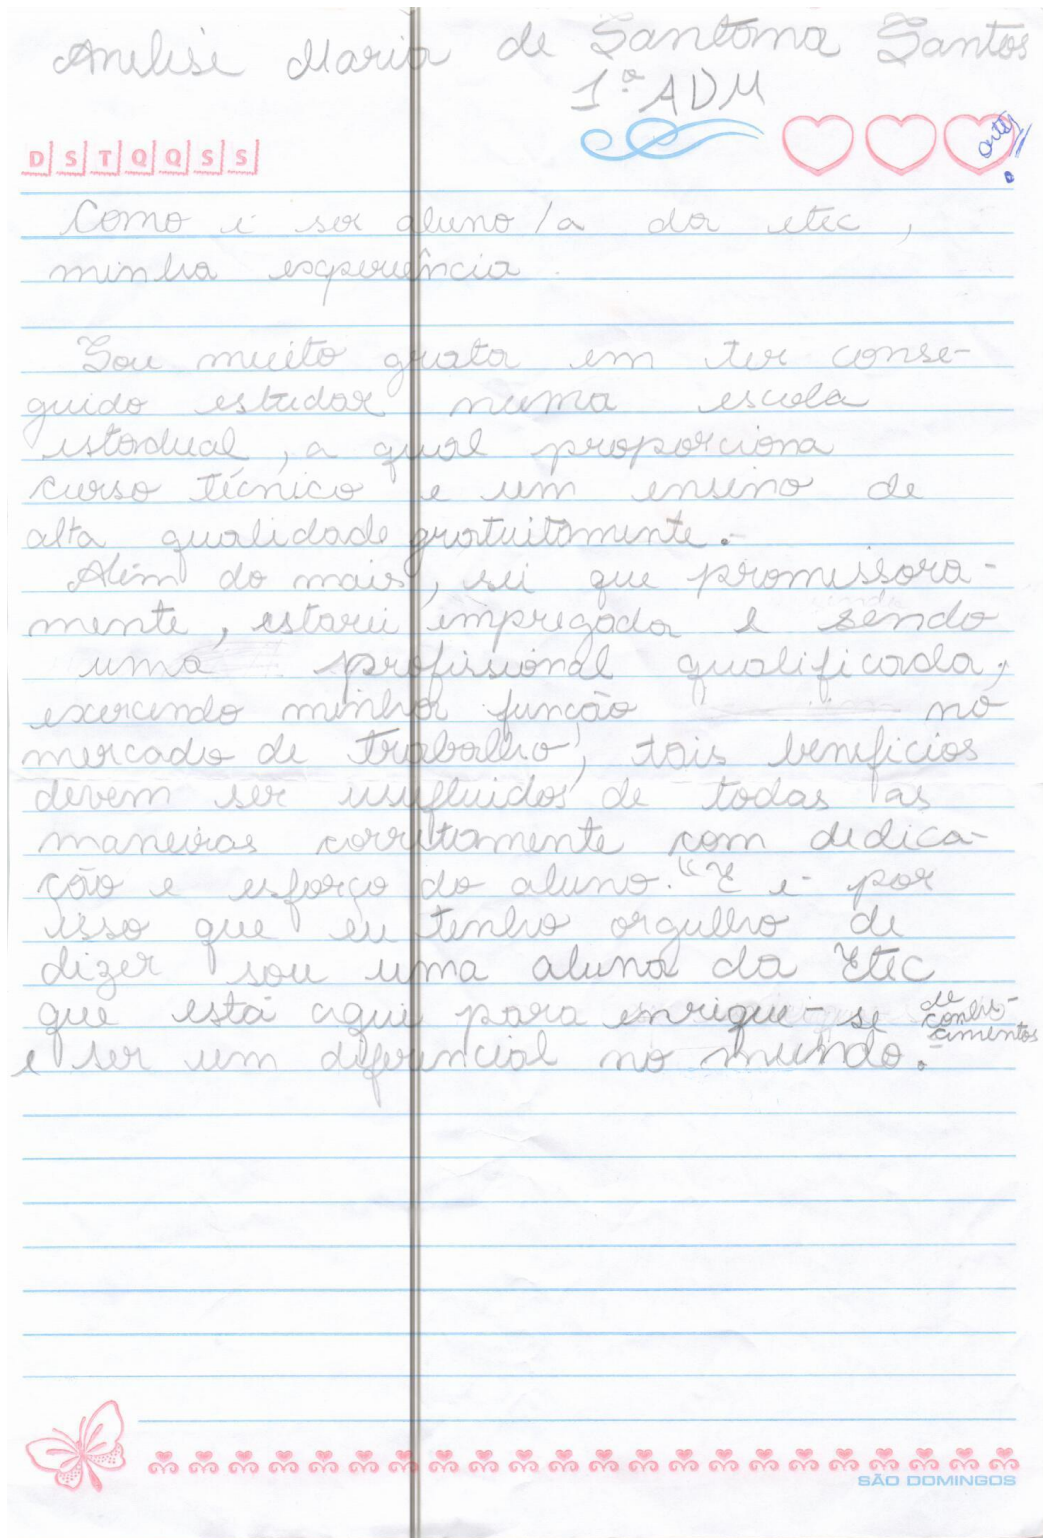 Anelise Maria de Santana Santos
1º ADM
D S T Q Q S S
Como é ser aluno/a da etec,
minha experiência.
Sou muito grata em ter conse-
guido estudar numa escola
estadual, a qual proporciona
curso técnico e um ensino de
alta qualidade gratuitamente.
Além do mais, sei que promissora-
mente, estarei empregada e sendo
uma profissional qualificada,
exercendo minha função no
mercado de trabalho, tais benefícios
devem ser usufluidos de todas as
maneiras corretamente com dedica-
ção e esforço do aluno. "E é por
isso que eu tenho orgulho de
dizer sou uma aluna da Etec
que está aqui para enrique-se de conhe-
cimentos
e ser um diferencial no mundo.
SÃO DOMINGOS